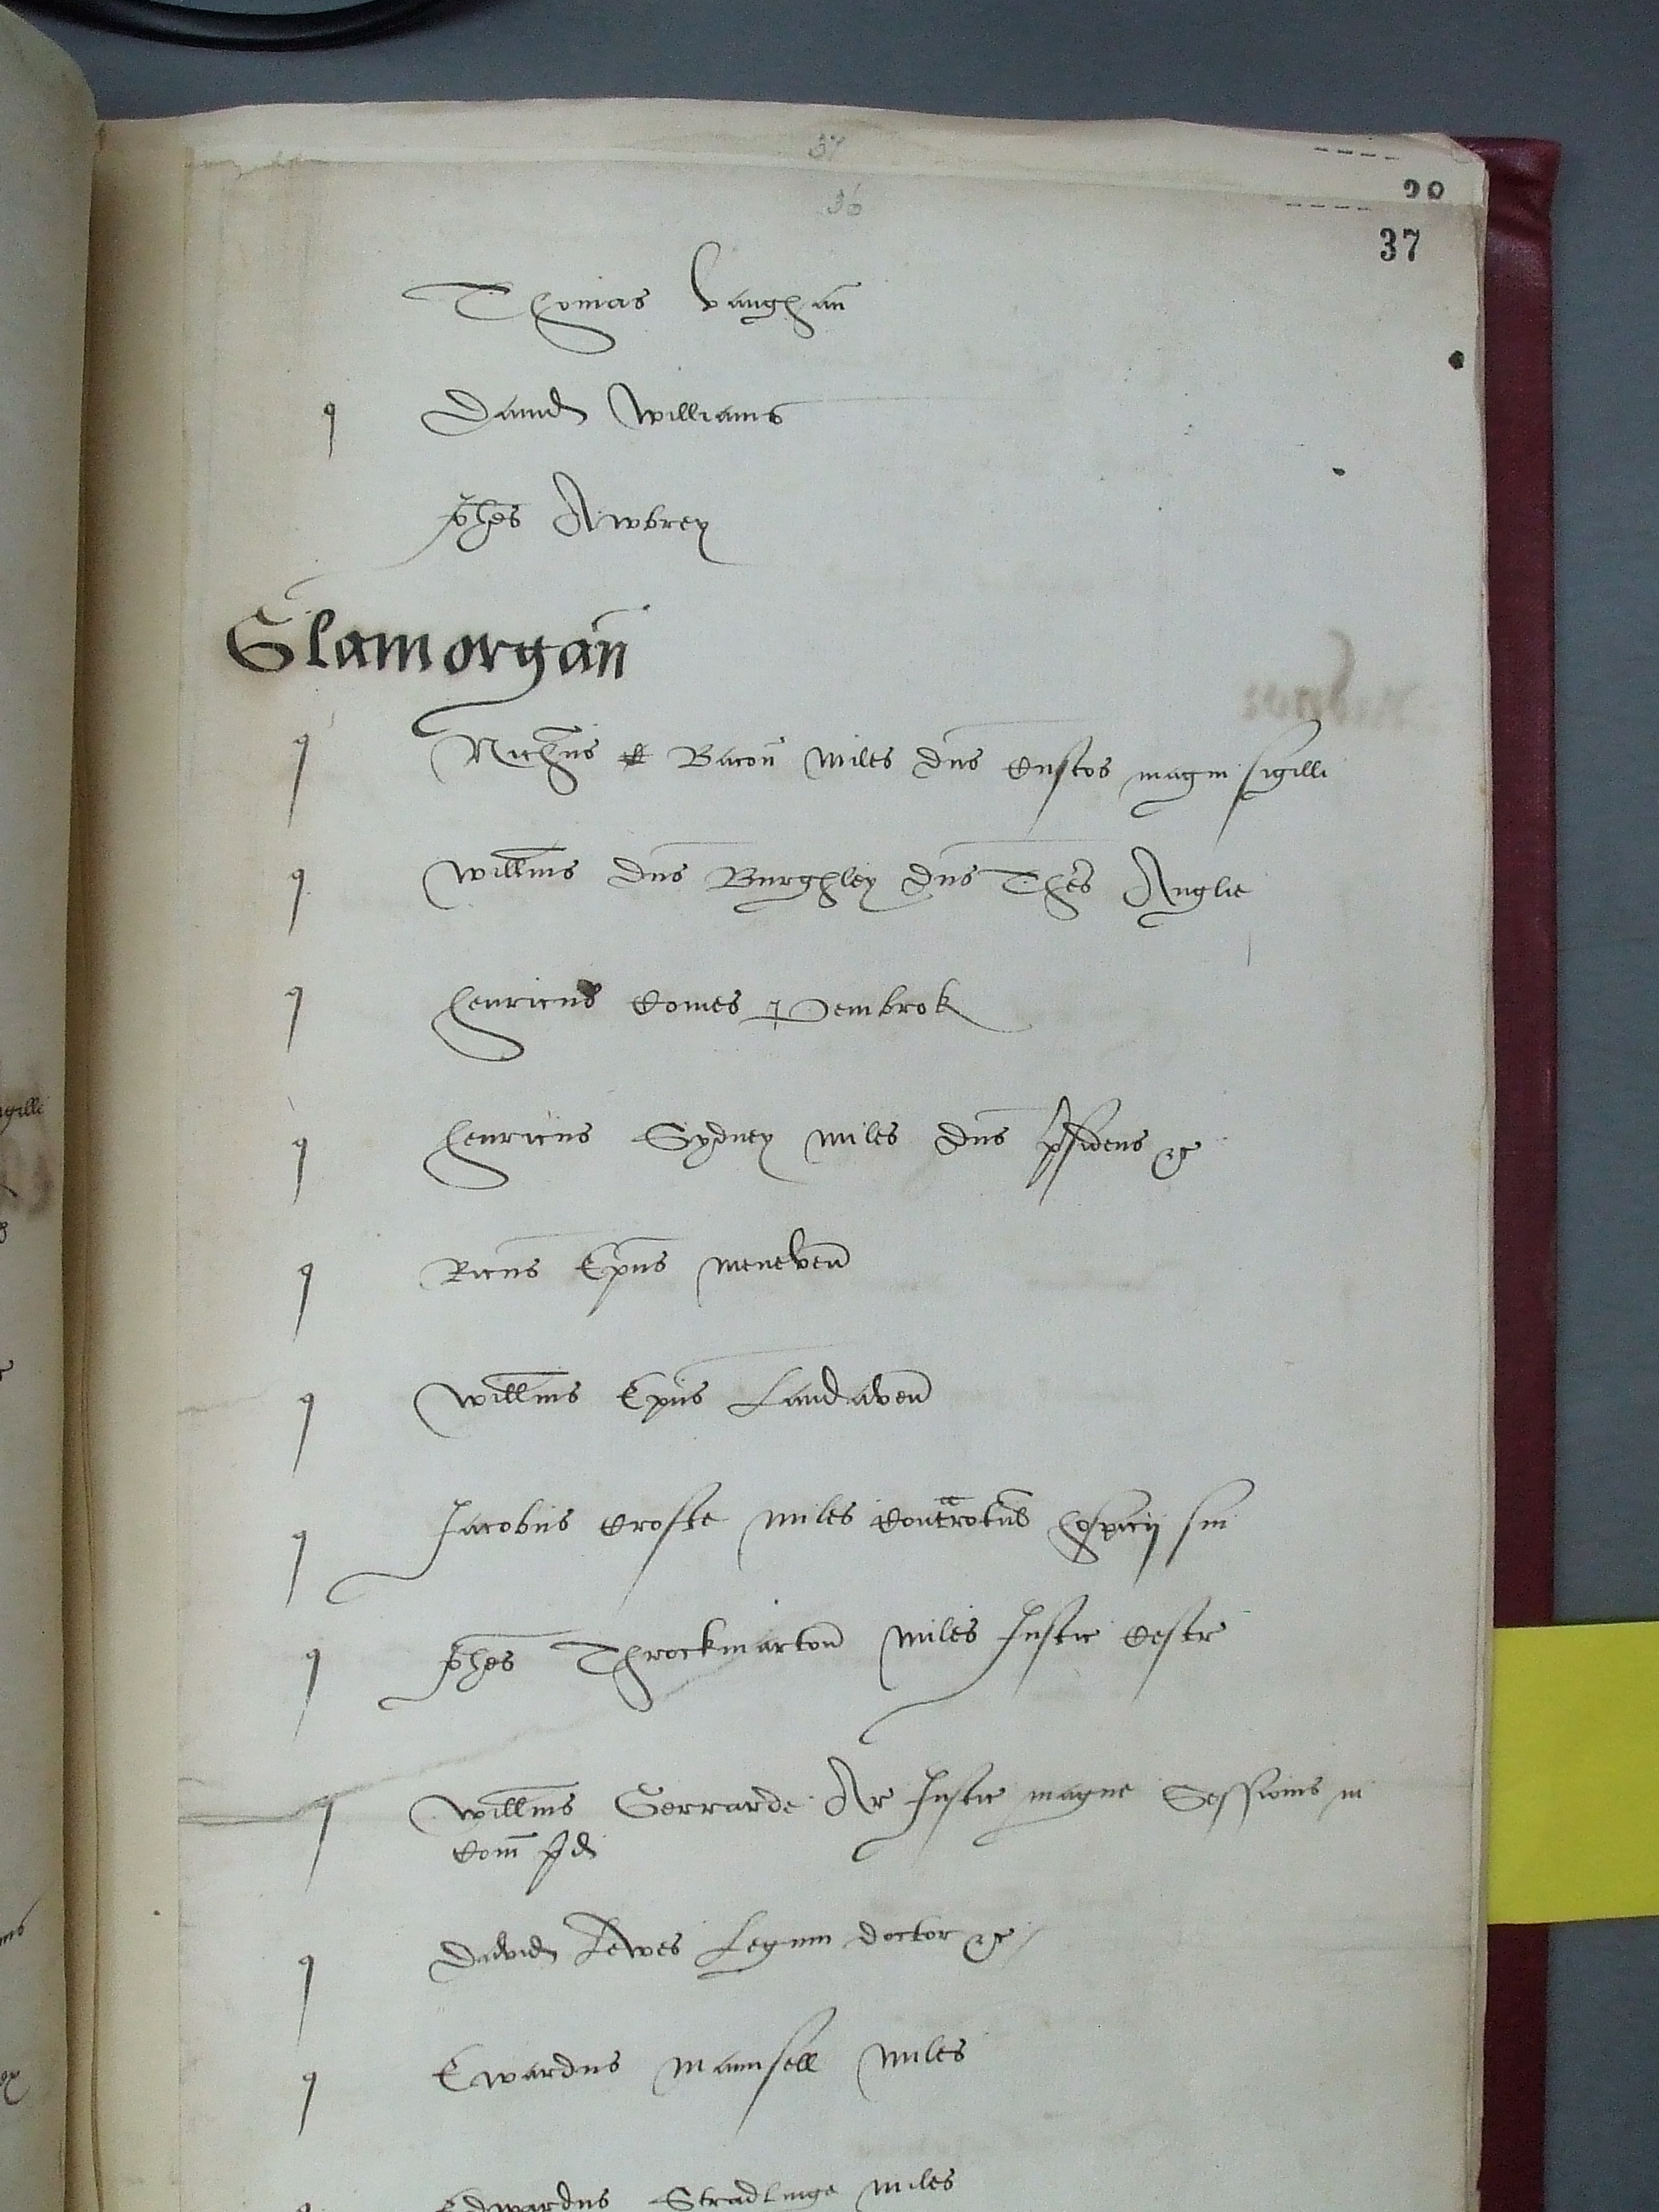 37
36
90
37
Thomas Vaughan
q David Williams
Johes Awbrey
Glamorgan
q Nichus Bacon miles dns Custos magni sigilli
q Willms dns Burghley dns Thes Anglie
q Henricus Comes Pembrok
q Henricus Sydney miles dns psidens &c
q Ricus Epus meneven
q Willms Epus Landaven
q Jacobus Crofte miles hospicij sui
q Johes Throckmarton miles Justic Cestr
q Willms Gerrarde Ar Justic magne Sessionis in
Com pd
q David Lewes Legum doctor &c
q Ewardus mannsell miles
Edwardus Stradlinge miles